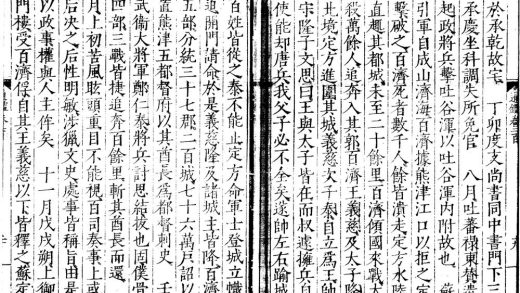 於承乾故宅　丁卯度支尚書同中書門下三
承慶坐科調失所免官　八月吐蕃祿東贊遣
起政將兵擊吐谷渾以吐谷渾內附故也　蘇
引軍自成山濟海百濟據熊津江口以拒之定
擊破之百濟死者數千人餘皆潰走定方水陸
直趣其都城未至二十餘里百濟傾國來戰大
殺萬餘人追奔入其郭百濟王義慈及太子隆
北境定方進圍其城義慈次子泰自立為王帥
守隆子文思曰王與太子皆在而叔遽擁兵自
使能却唐兵我父子必不全矣遂帥左右踰城
百姓皆從之泰不能止定方命軍士登城立幟
迫開門請命於是義慈隆及諸城主皆降百濟
五部分統三十七郡二百城七十六萬戶詔以
置熊津五都督府以其酋長為都督刺史　壬
武衛大將軍鄭仁泰將兵討思結拔也固僕骨
四部三戰皆捷追奔百餘里斬其酋長而還
月上初苦風眩頭重目不能視百司奏事上或
后決之后性明敏涉獵文史處事皆稱旨由是
以政事權與人主侔矣　十一月戊戌朔上御
門樓受百濟俘自其王義慈以下皆釋之蘇定